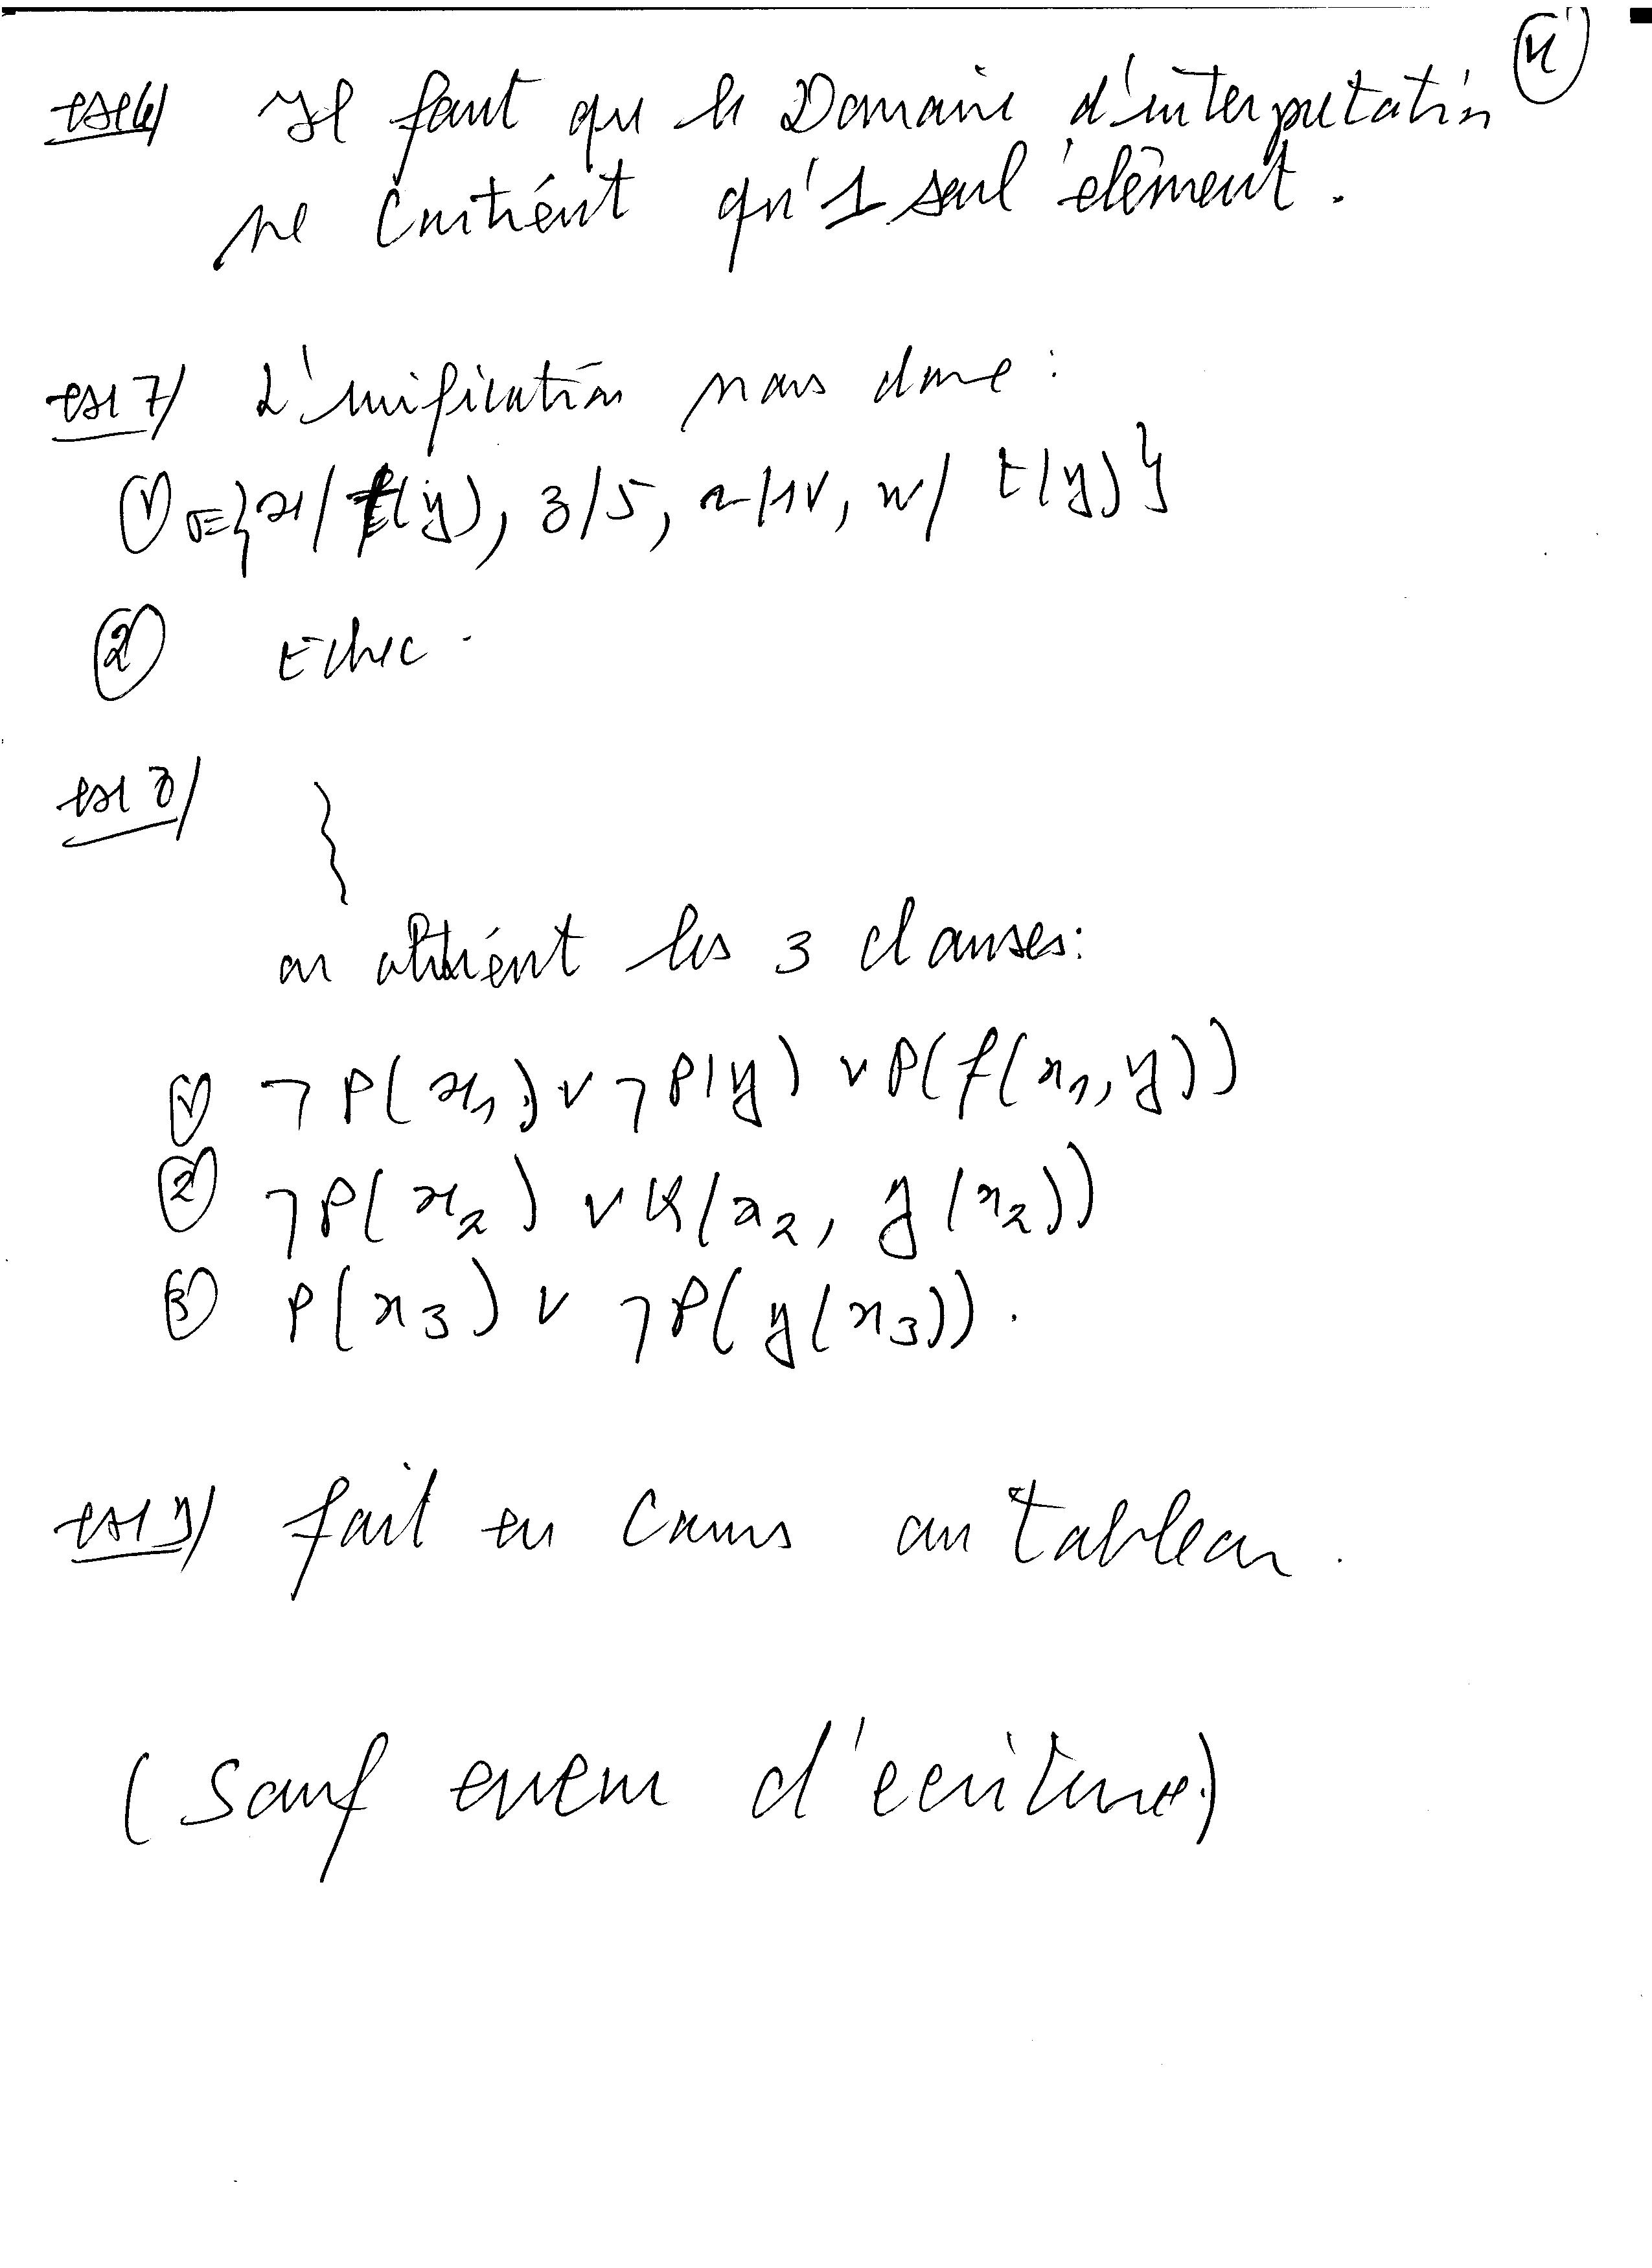 ④
exe 6/ Il faut que le Domaine d'interpretation
ne contient qu'1 seul élément.
exe 7/ L'unification nous donne :
① σ={x/t(y), z/5, r/v, w/ t(y)}
② Echec.
exe 8/
on obtient les 3 clauses:
① ¬P(x₁) ∨ ¬P(y) ∨ P(f(x₁,y))
② ¬P(x₂) ∨ (x₂, g(x₂))
③ P(x₃) ∨ ¬P(g(x₃)).
exe 9/ fait en cours au tableau.
(sauf erreur d'ecriture)